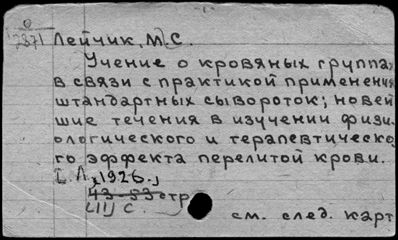 0
2871 Лейчик, М.С.
Учение о кровяных группах
в связи с практикой применения
штандартных сывороток; новей
шие течения в изучении физи
ологического и терапевтическо
го эффекта перелитой крови.
Л., 1926.,
43-53 стр
с.
см. след. карт